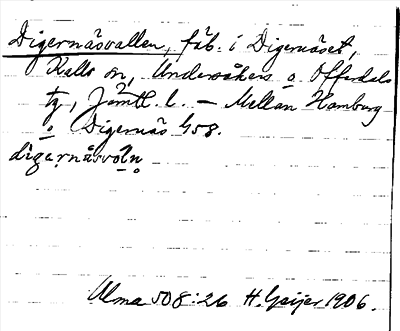 Digernäsvallen, fäb. i Digernäset,
Kalls sn, Undersåkers o Offerdals
tg, Jämtl. l. — Mellan Hamburg
o Digernäs 458.
digernäsvoln
Ulma 508:26 H. Geijer 1906.